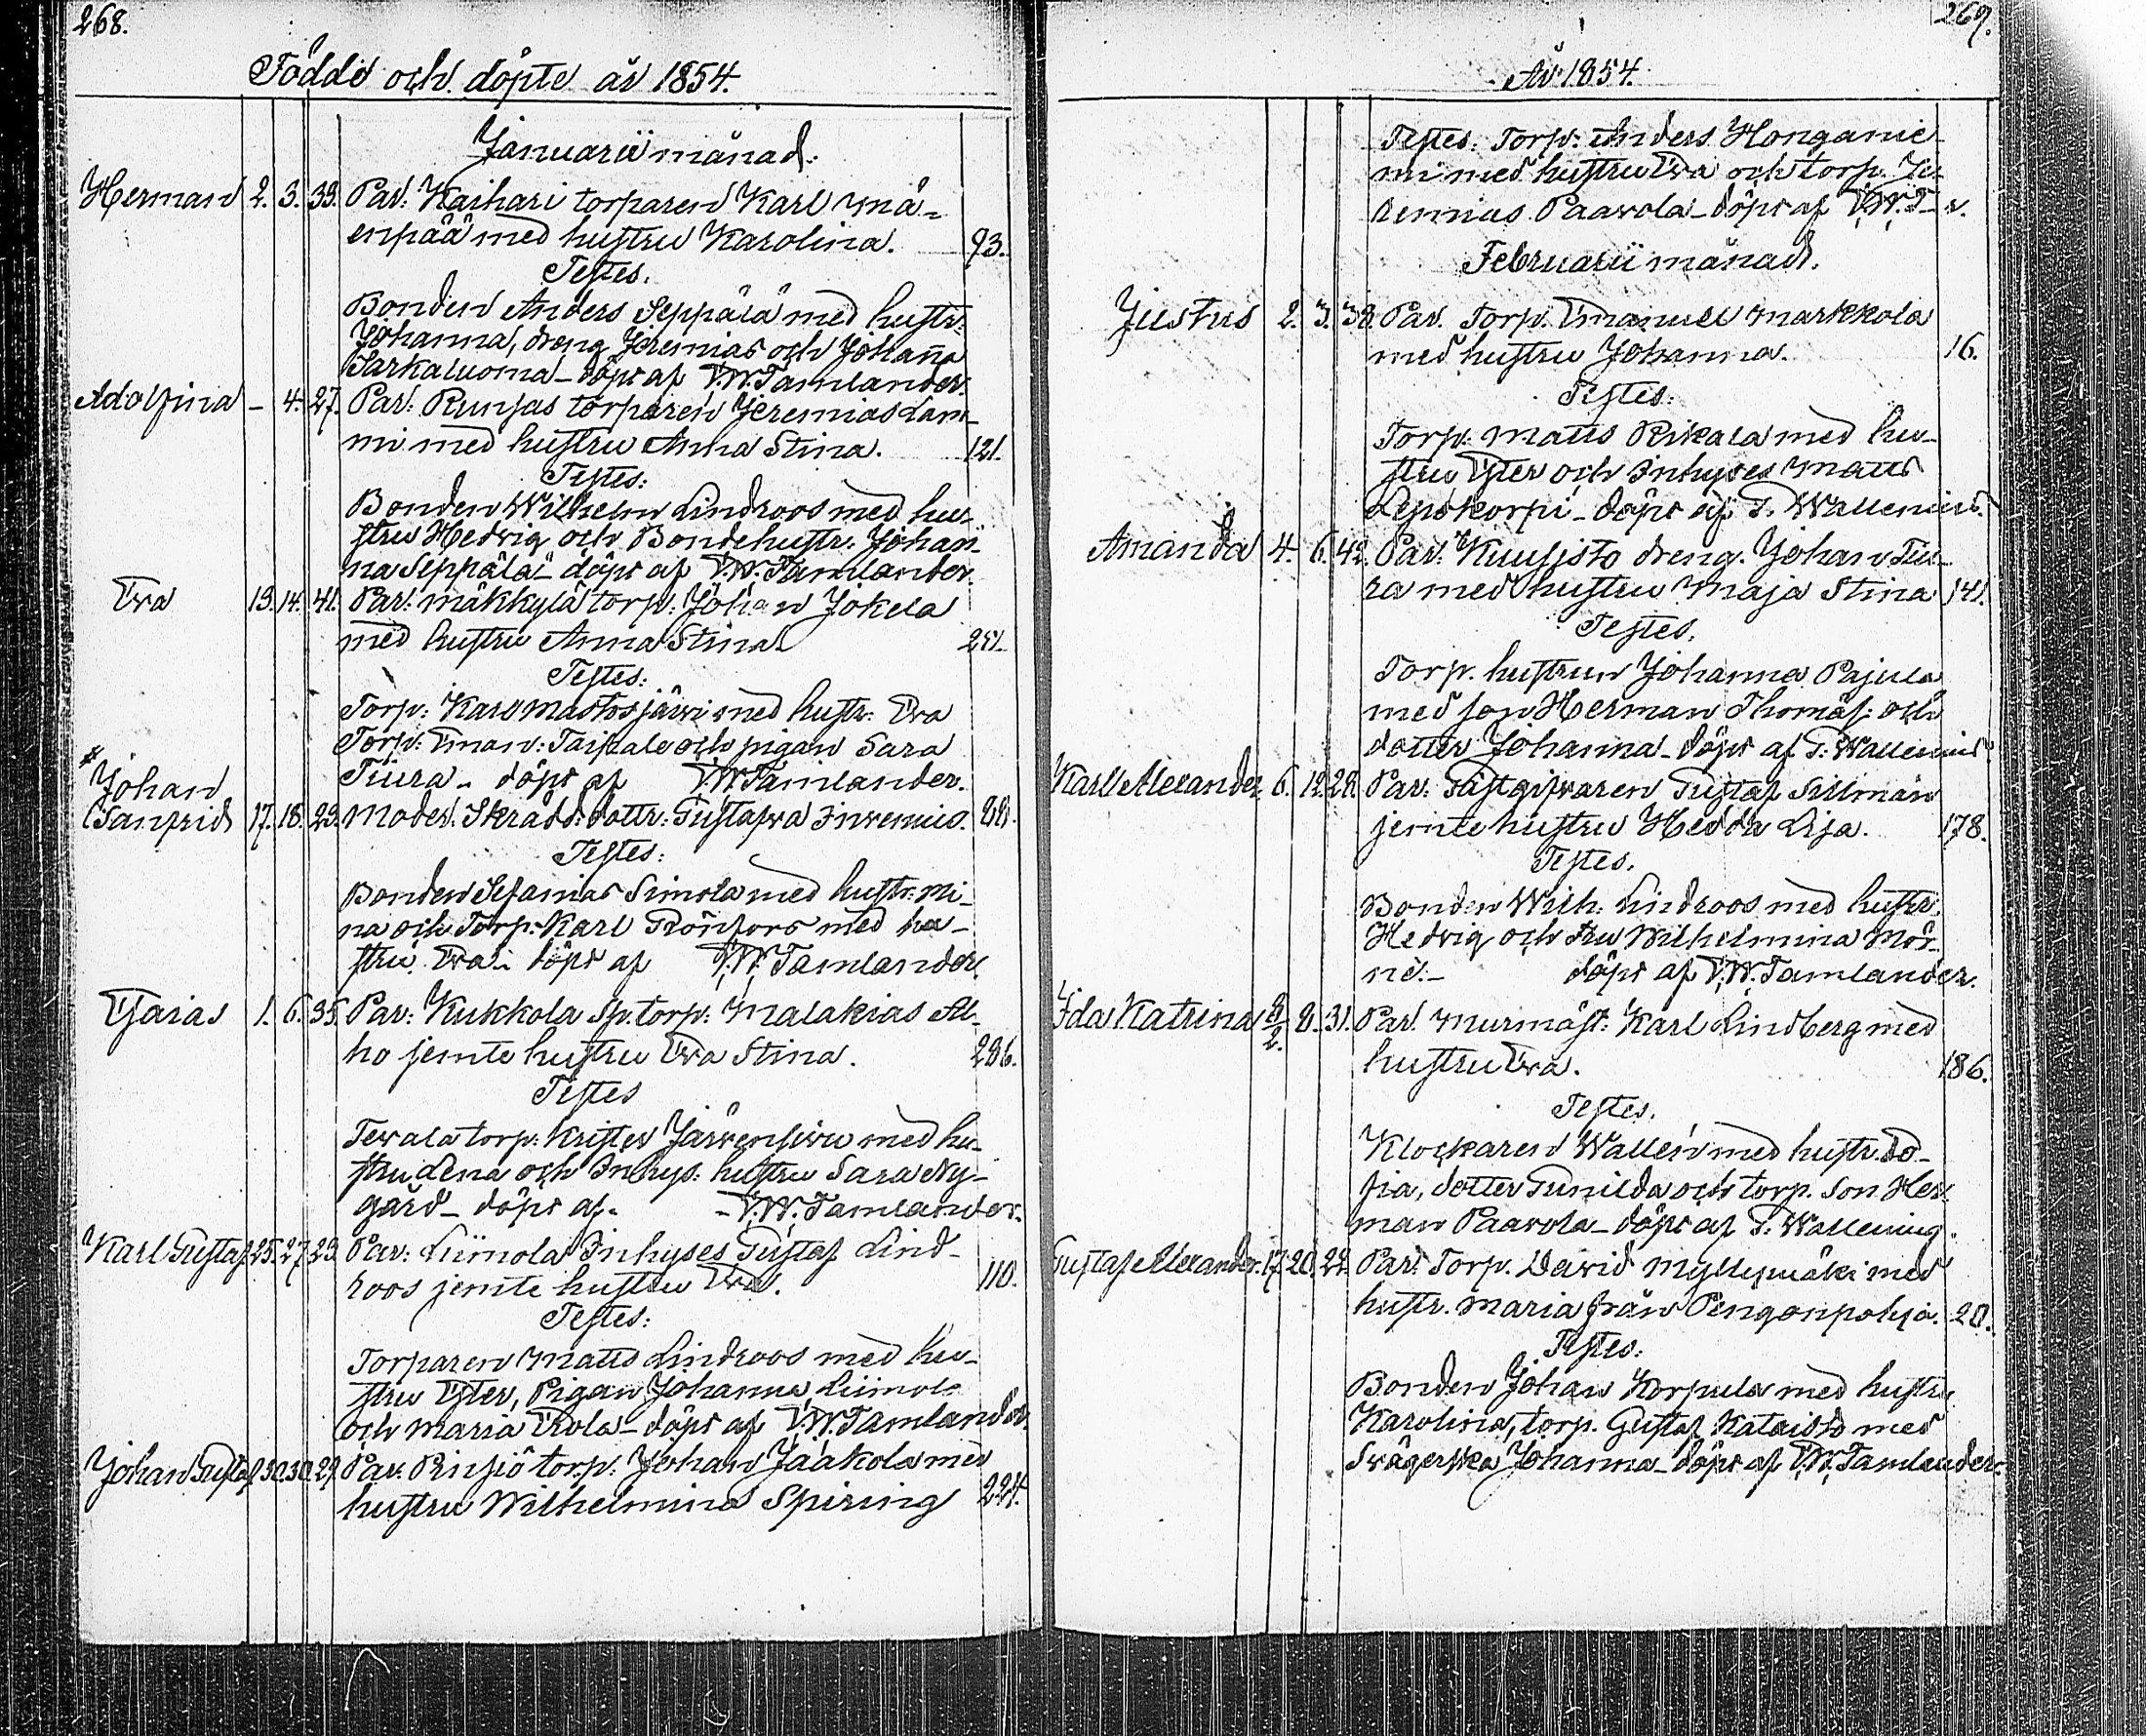 268.
Födde och döpte år 1854.
Januarii månad.
Herman 2. 3. 39. Par: Kaihari torparen Karl Mä-
enpää med hustru Karolina. 93.
Testes.
Bonden Anders Seppälä med hustr:
Johanna, dreng Jeremias och Johaña
Sarkaluoma – döpt af V.W. Tamlander.
Adolfina – 4. 27. Par: Runjas torparen Jeremias Lam-
mi med hustru Anna Stina. 121.
Testes:
Bonden Wilhelm Lindroos med hu-
stru Hedvig och Bondehustr. Johan-
na Seppälä – döpt af V.W. Tamlander.
Eva 13. 14. 41. Par: Mäkkylä torp: Johan Jokela
med hustru Anna Stina
Testes:
Torp: Karl Mastosjärvi med hustr: Eva
Torp: Eman: Taipale och pigan Sara
Tiura – döpt af V.W. Tamlander.
Johan
Sanfrid 17. 18. 23. Moder. Skrädd: dottr: Gustafva Invenius.
Testes:
Bonden Sefanias Simola med hustr: Mi-
na och Torp: Karl Grönfors med hu-
stru Eva – döpt af V.W. Tamlander.
Esaias 1. 6. 35. Par: Kukkola Sp. torp: Malakias Al-
ho jemte hustru Eva Stina. 286.
Testes
Tevala torp: Krister Järvensivu med hu-
stru Lena och Inhys: hustru Sara Ny-
gård – döpt af – V.W. Tamlander.
Karl Gustaf 25. 27. 23. Par: Liinola Inhyses Gustaf Lind-
roos jemte hustru Eva. 110.
Testes:
Torparen Matts Lindroos med hu-
stru Ester, Pigan Johanna Liinola
och Maria Erola – döpt af V.W. Tamlander.
Johan Gustaf 30. 30. 29. Par. Risjö torp: Johan Jaakola med
hustru Wilhelmina Spiring 224.
269.
År 1854.
Testes: Torp: Anders Honganie-
mi med hustru Eva och torp. Je-
remias Paavola – döpt af V.W. T–r.
Februarii månad.
Justus 2. 3. 38. Par. Torp. Emanuel Markkola
med hustru Johanna. 16.
Testes:
Torp: Matts Rikala med hu-
stru Ester och Inhyses Matts
Lepokorpi – döpt af T. Wallenius.
Amanda 4. 6. 42. Par. Kuusisto dreng. Johan Tiu-
ra med hustru Maja Stina 141.
Testes.
Torp. hustrun Johanna Pajula
med son Herman Thomas: och
dotter Johanna – döpt af T. Wallenius
Karl Alexander 6. 12. 28. Par. Gästgifvaren Gustaf Sillman
jemte hustru Hedda Lisa. 178.
Testes.
Bonden Wilh: Lindroos med hustr.
Hedvig och fru Wilhelmina Mör-
ne. – döpt af V.W. Tamlander.
Ida Katrina 8/2. 8. 31. Par. Murmäst: Karl Lindberg med
hustru Eva. 186.
Testes.
Klockaren Wallén med hustr. So-
fia, dotter Gunilda och torp. son Her-
man Paavola – döpt af T. Wallenius.
Gustaf Alexander. 17. 20. 22. Par. Torp. David Myllymäki med
hustr. Maria från Pengonpohja. 20.
Testes:
Bonden Johan Korpula med hustru
Karolina, torp. Gustaf Kataisto med
Svägerska Johanna – döpt af V.W. Tamlander.